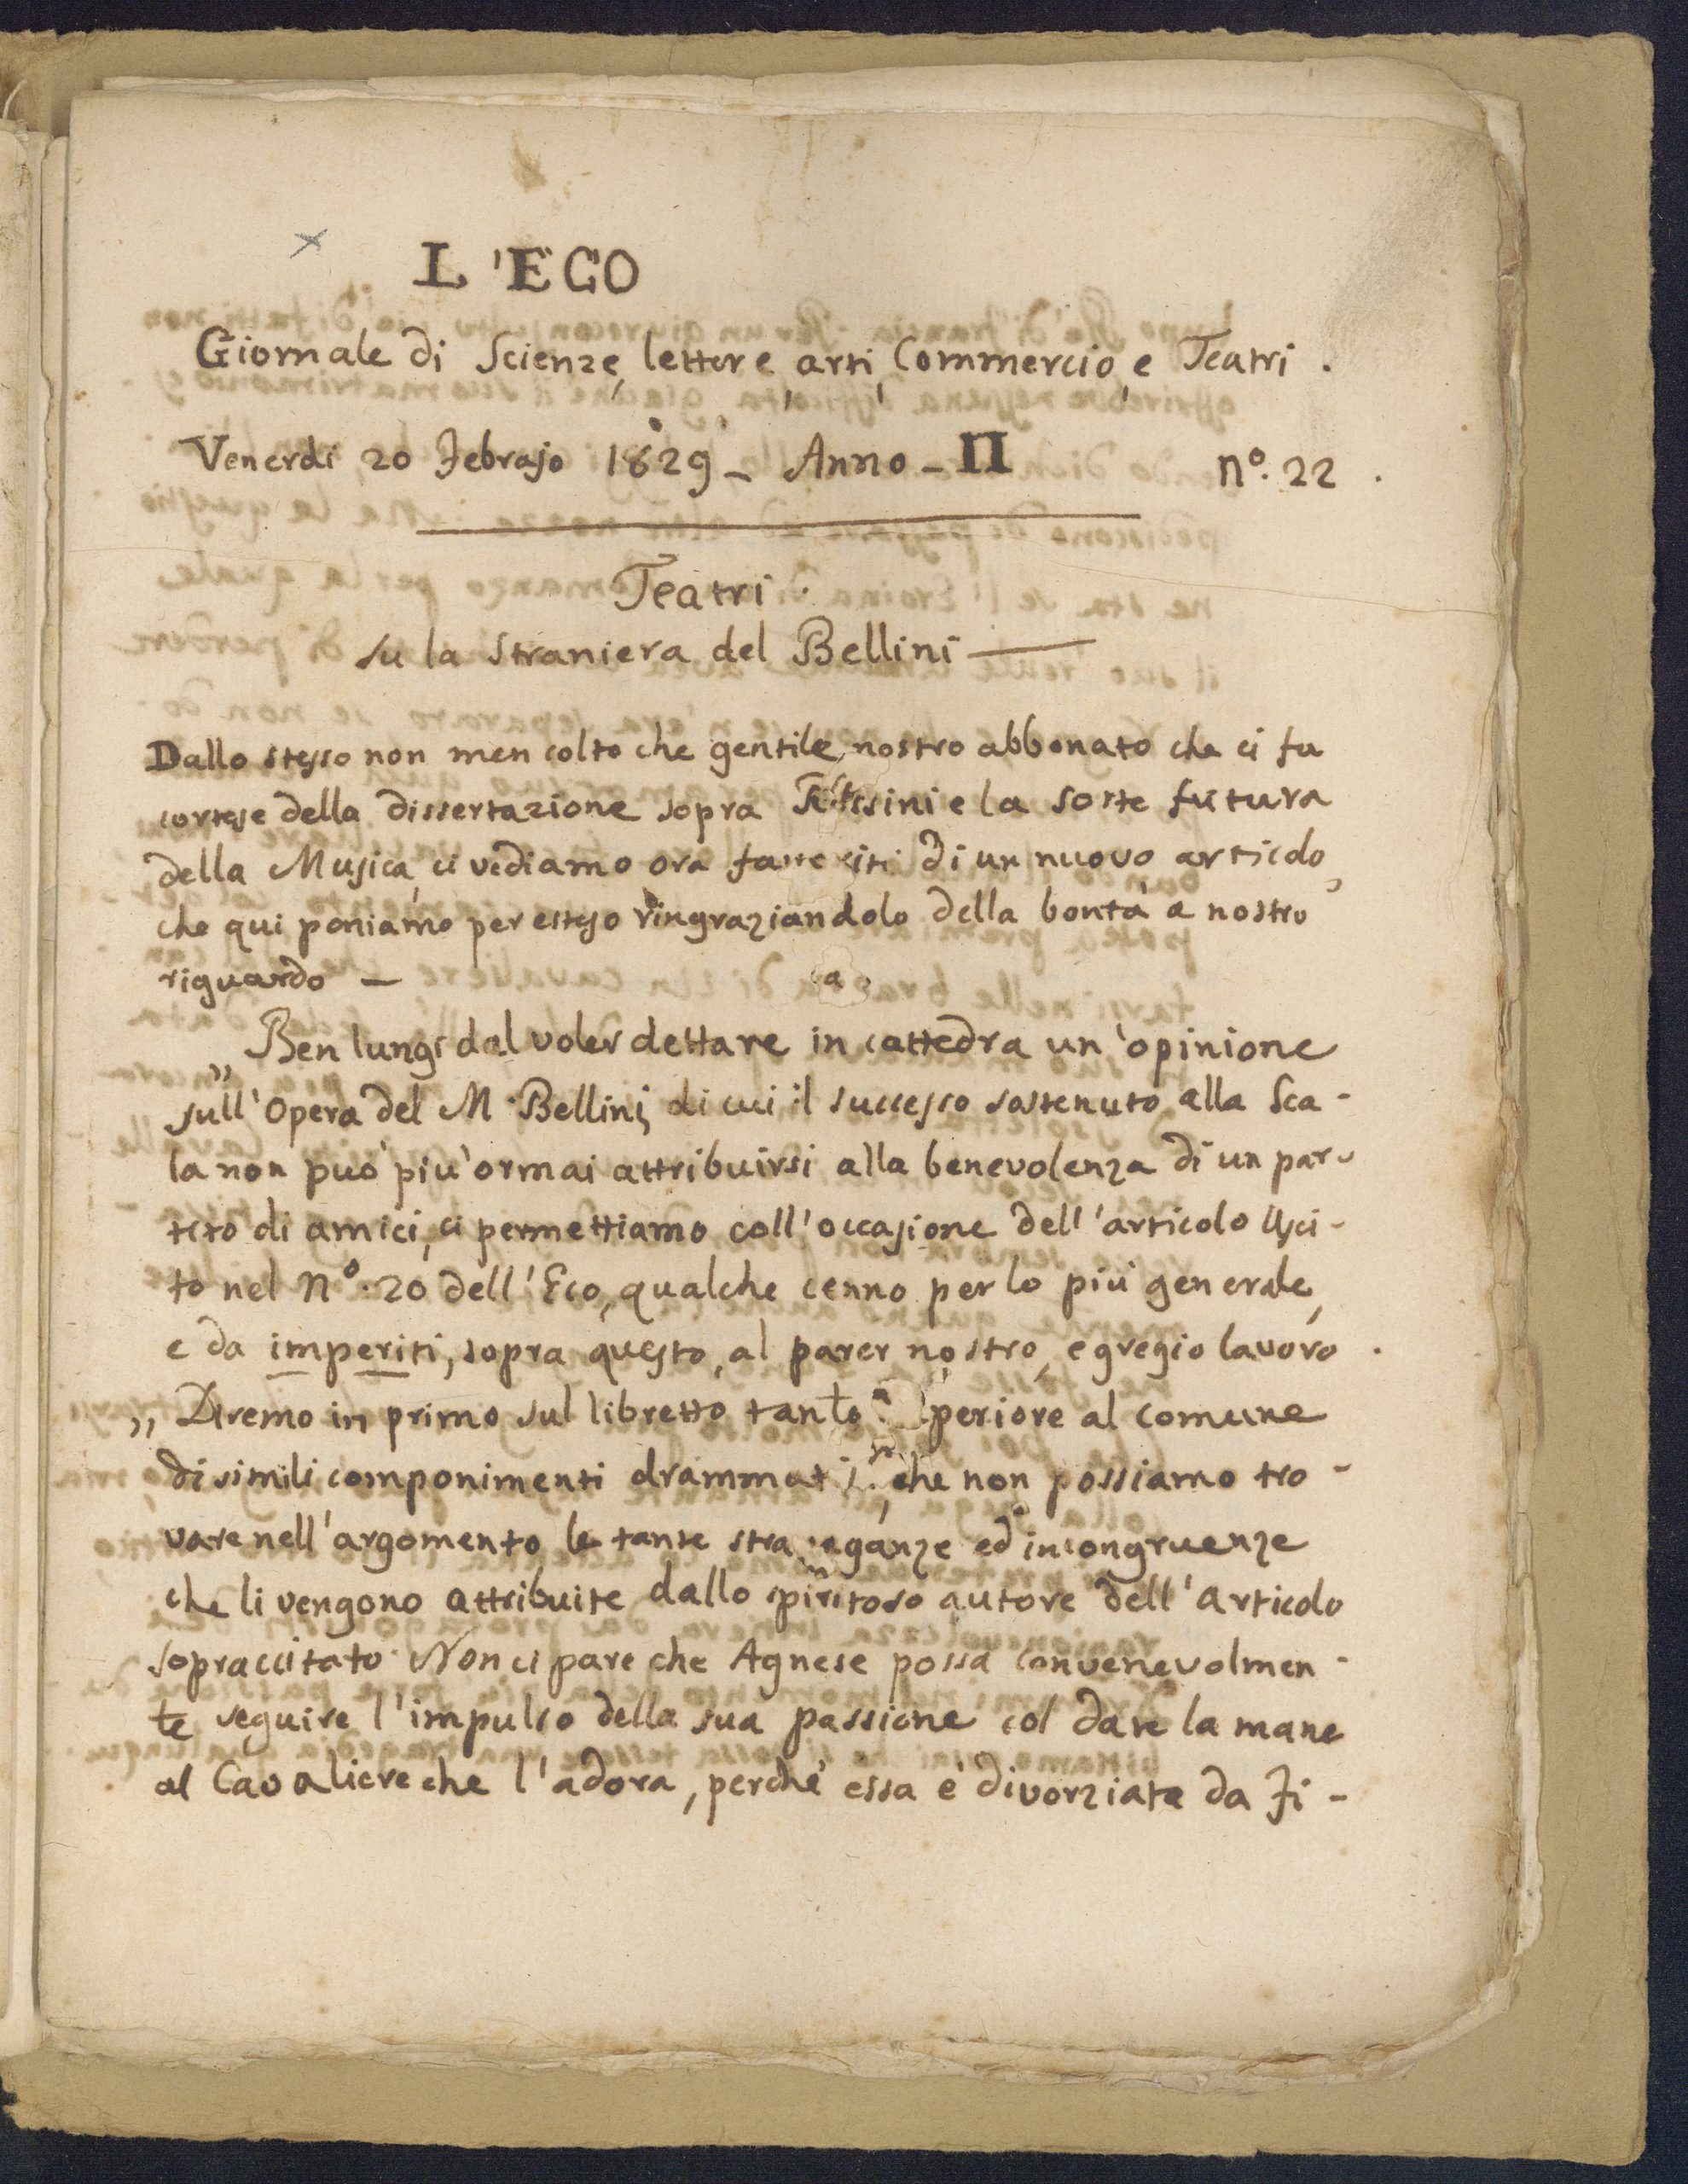 L'ECO
Giornale di Scienze, lettere, arti, Commercio, e Teatri.
Venerdi 20 Febrajo 1829 - Anno - II Nº. 22.
Teatri.
su la Straniera del Bellini
Dallo stesso non men colto che gentile nostro abbonato che ci fu
cortese della dissertazione sopra e la sorte futura
della Musica, ci vediamo ora di un nuovo articolo,
che qui poniamo per esteso ringraziandolo della bontà a nostro
riguardo —
„ Ben lungi dal voler dettare in cattedra un'opinione
sull'Opera del M. Bellini, di cui il successo sostenuto alla Sca-
la non può più ormai attribuirsi alla benevolenza di un par-
tito di amici, ci permettiamo coll'occasione dell'articolo Usci-
to nel Nº. 20 dell'Eco, qualche cenno per lo più generale,
e da imperiti, sopra questo, al parer nostro, egregio lavoro.
„ Diremo in primo sul libretto tanto al comune
di simili componimenti che non possiamo tro-
vare nell'argomento le tante ed incongruenze
che li vengono attribuite dallo spiritoso autore dell'articolo
sopraccitato. Non ci pare che Agnese possa convenevolmen-
te seguire l'impulso della sua passione col dare la mano
al Cavaliere che l'adora, perchè essa è divorziata da Fi-